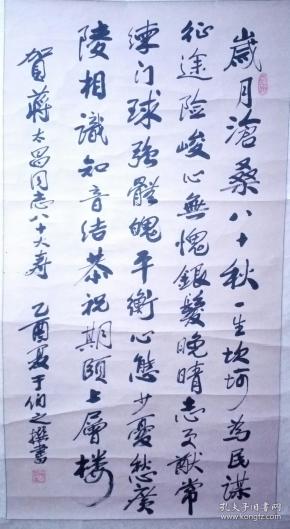 歲月滄桑八十秋一生坎坷為民谋
征途险峻心無愧銀髮晚晴志更猷常
練门球强體魄平衡心態少憂愁廣
陵相識知音结恭祝期頤上層楼
贺蒋太昌同志八十大寿 乙酉夏于伯之撰書
孔夫子旧书网